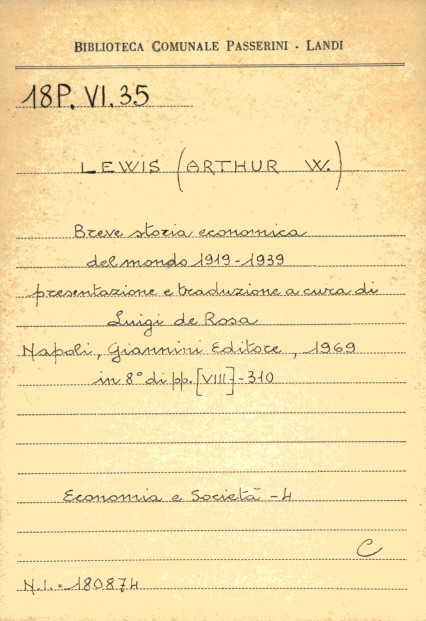 BIBLIOTECA COMUNALE PASSERINI - LANDI
18P. VI. 35
LEWIS (ARTHUR W.)
Breve storia economica
del mondo 1919-1939
presentazione e traduzione a cura di
Luigi de Rosa
Napoli, Giannini Editore, 1969
in 8° di pp. [VIII]-310
Economia e Società - 4
C
N.I. = 180874